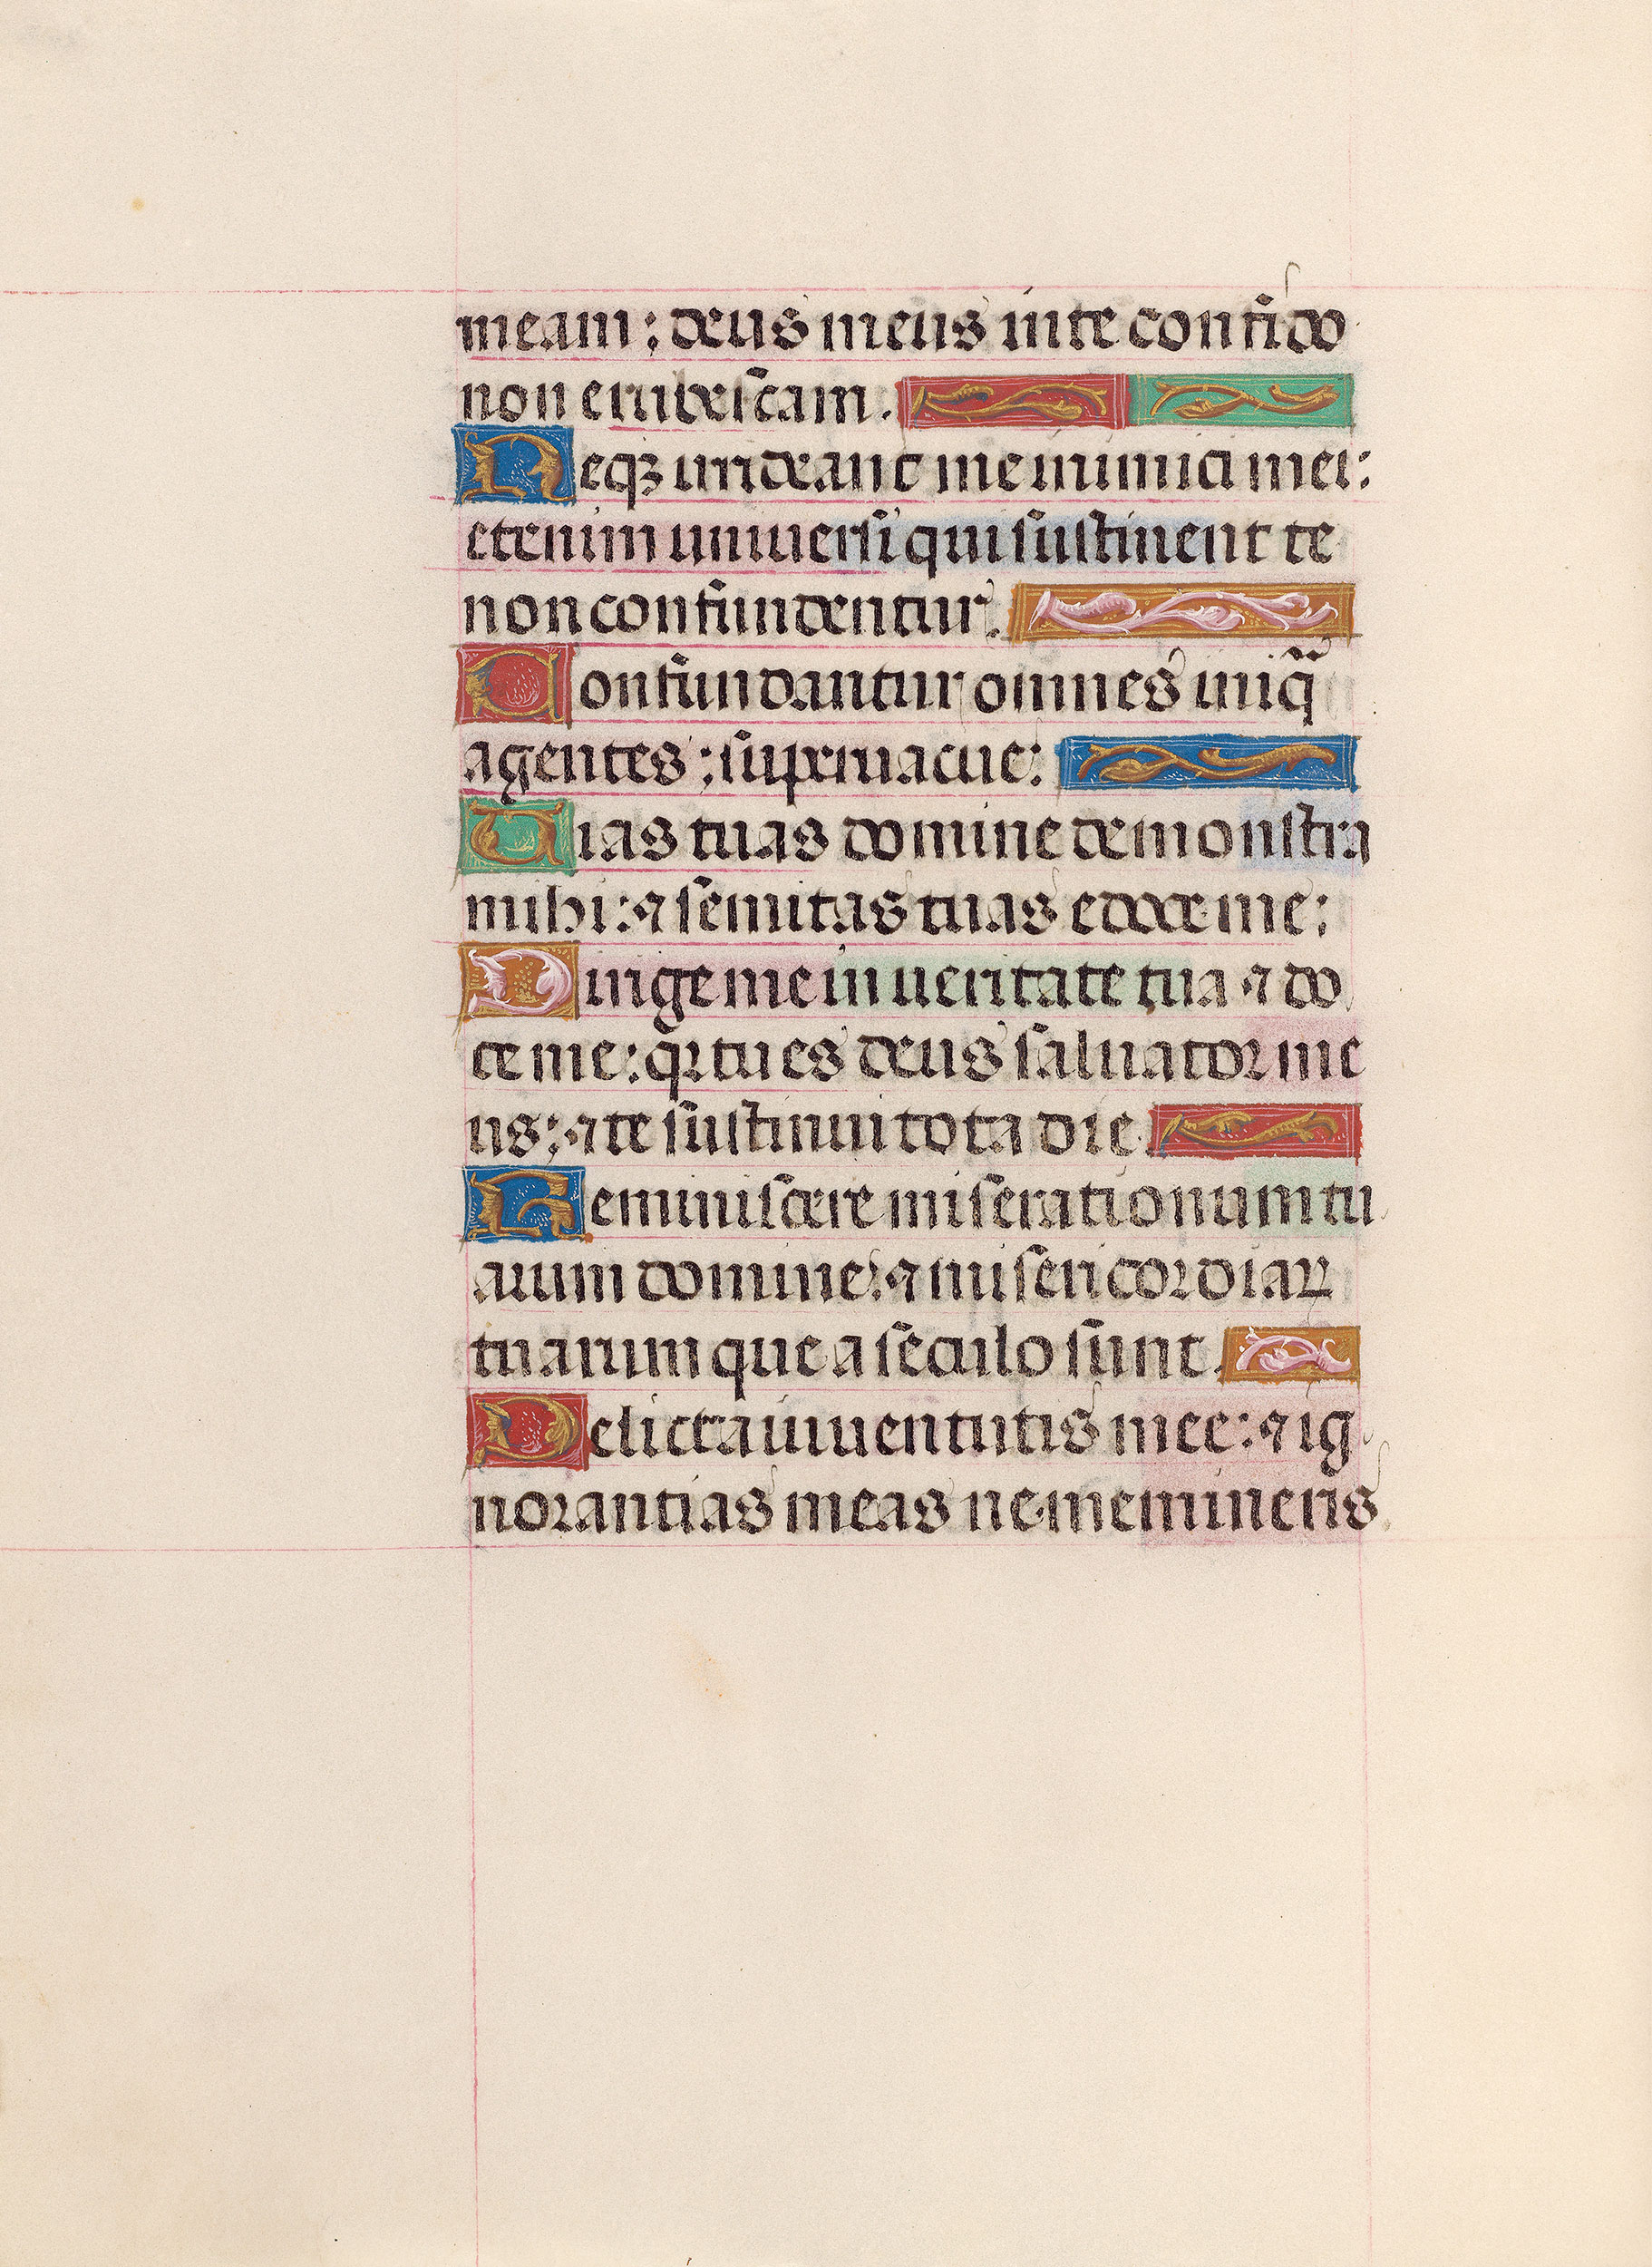 meam: deus meus in te confido
non erubescam.
Neqꝫ irrideant me inimici mei:
etenim universi qui sustinent te
non confundentur.
Confundantur omnes iniq̄
agentes: supervacue:
Vias tuas domine demonstra
mihi: ⁊ semitas tuas edoce me:
Dirige me in veritate tua ⁊ do
ce me: qꝛ tu es deus salvator me
us: ⁊ te sustinui tota die
Reminiscere miserationum tu
arum domine: ⁊ misericordiaꝝ
tuarum que a seculo sunt.
Delicta iuventutis mee: ⁊ ig
norantias meas ne memineris